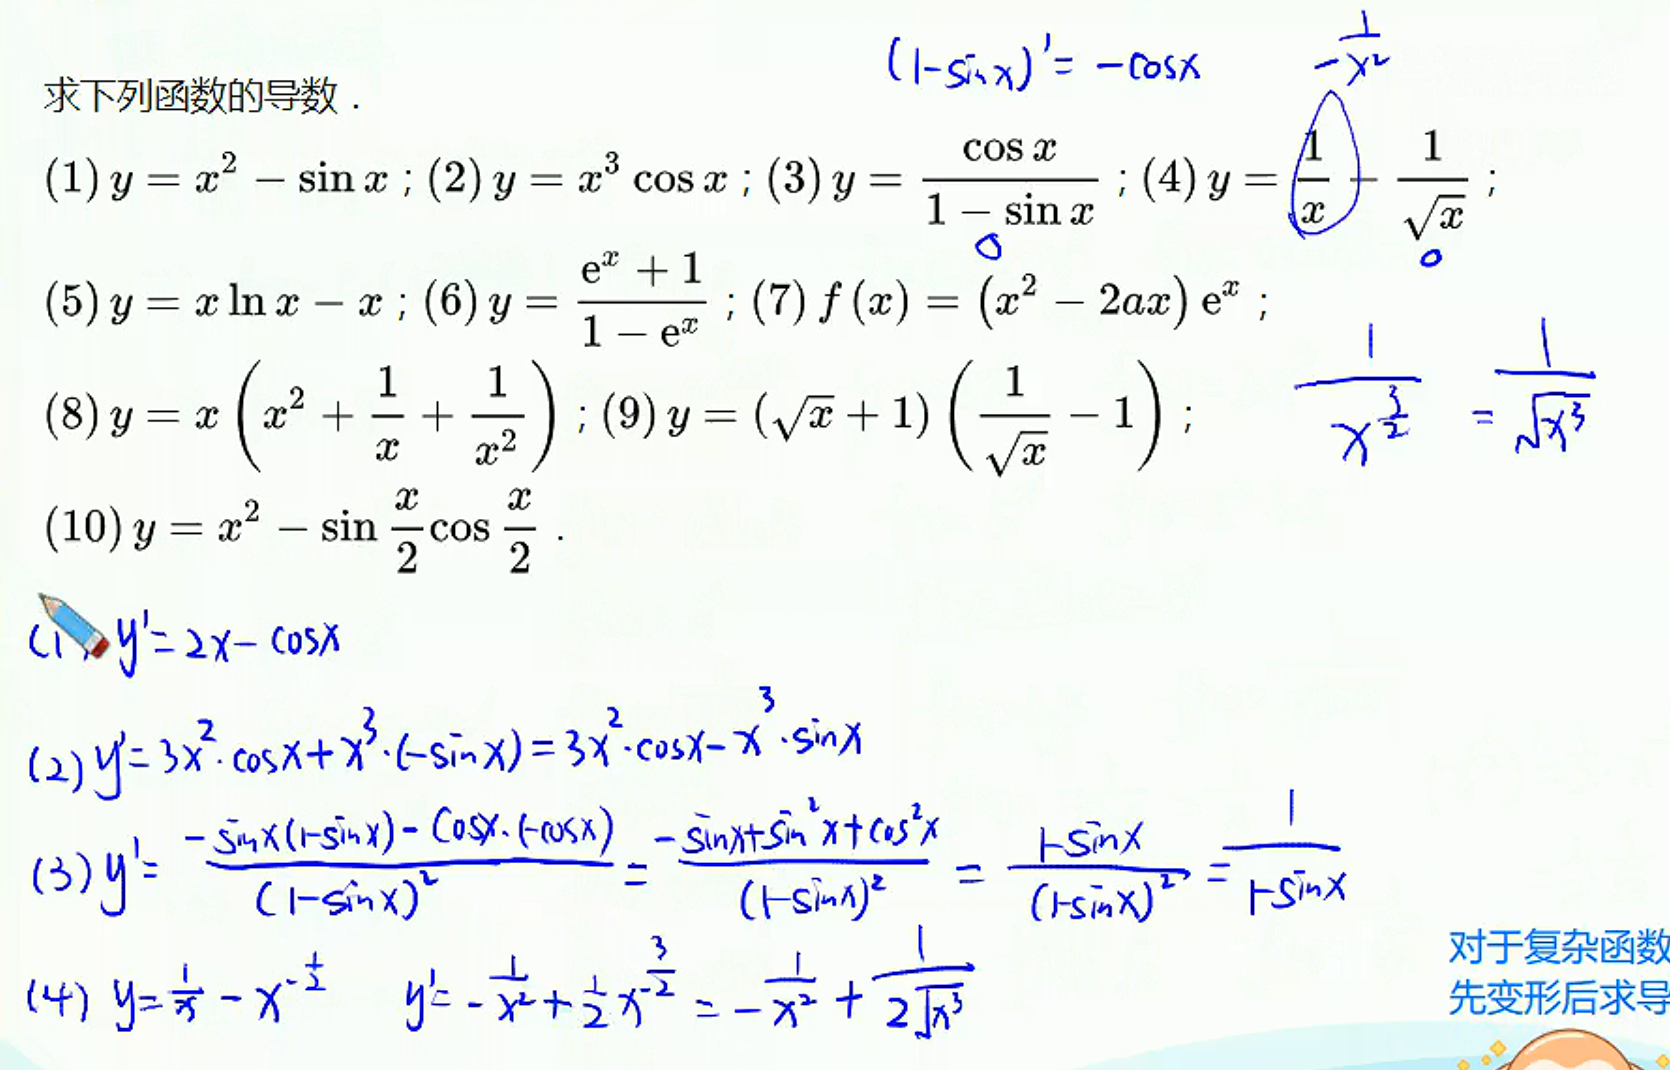 (1-sinx)'=-cosx
-1/x²
求下列函数的导数．
(1) y = x² − sin x ; (2) y = x³ cos x ; (3) y = cos x/(1 − sin x) ; (4) y = 1/x − 1/√x ;
(5) y = x ln x − x ; (6) y = (eˣ + 1)/(1 − eˣ) ; (7) f (x) = (x² − 2ax) eˣ ;
(8) y = x (x² + 1/x + 1/x²) ; (9) y = (√x + 1) (1/√x − 1) ;
1/x^(3/2) = 1/√x³
(10) y = x² − sin x/2 cos x/2 .
(1) y'=2x-cosx
(2) y'=3x²·cosx+x³·(-sinx)=3x²·cosx-x³·sinx
(3) y'=(-sinx(1-sinx)-cosx·(-cosx))/(1-sinx)² = (-sinx+sin²x+cos²x)/(1-sinx)² = (1-sinx)/(1-sinx)² = 1/(1-sinx)
(4) y=1/x-x^(-1/2) y'=-1/x²+1/2x^(-3/2)=-1/x²+1/(2√x³)
对于复杂函数
先变形后求导